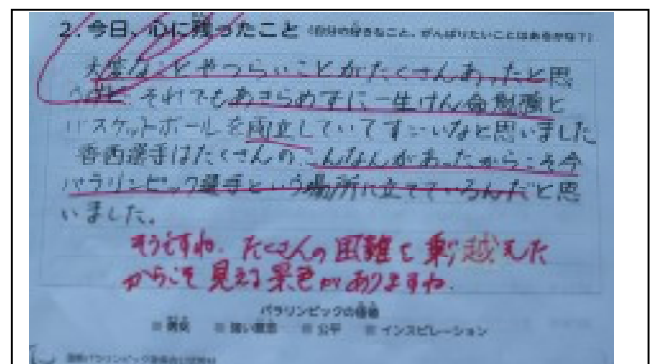 2.今日、心に残ったこと（自分の好きなこと、がんばりたいことはあるかな？）
大変なことやつらいことがたくさんあったと思
うけど、それでもあきらめずに一生けん命勉強と
バスケットボールを両立していてすごいなと思いました
香西選手はたくさんのこんなんがあったからこそ今
パラリンピック選手という場所に立てているんだと思
いました。
そうですね。たくさんの困難を乗り越えた
からこそ見える景色がありますね。
パラリンピックの価値
勇気 強い意志 公平 インスピレーション